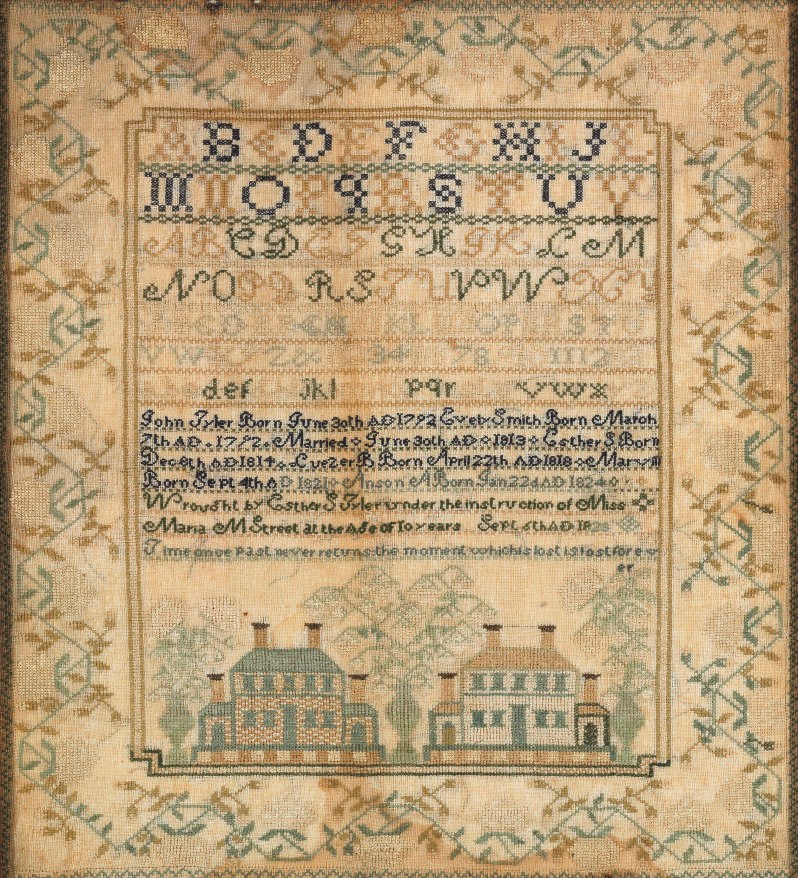 A B C D E F G H I J L
M N O P q R S T U Y
A B C D E F G H I K L M
N O P Q R S T U V W X Y
C D K L O P S T U
V W Z 3 4 7 8 11 12
def jkl pqr vwx
John Tyler Born June 30th AD 1792 Smith Born March
7th AD 1792 Married June 30th AD 1813 Esther S Born
Dec 8th AD 1814 B Born April 22th AD 1818
Born Sept 4th AD 1821 Anson A Born Jan 22d AD 1824
Wrought by Esther S Tyler under the instruction of Miss
Maria M Street at the Age of 10 years Sept 6th AD
Time once past never retuns the moment which is lost is lost forev
er